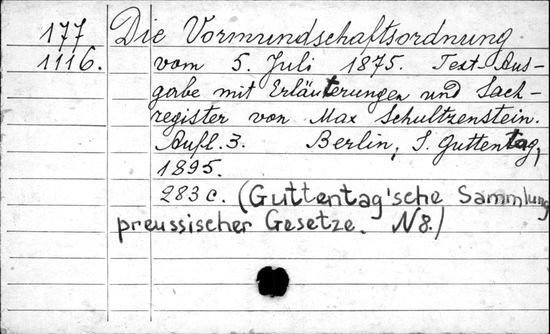 177 Die Vormundschaftsordnung
1116. vom 5. Juli 1875. Text-Aus-
gabe mit Erläuterungen und Sach-
register von Max Schultzenstein.
Aufl. 3. Berlin, J. Guttentag,
1895.
283 c. (Guttentag'sche Sammlung
preussischer Gesetze. N 8.)